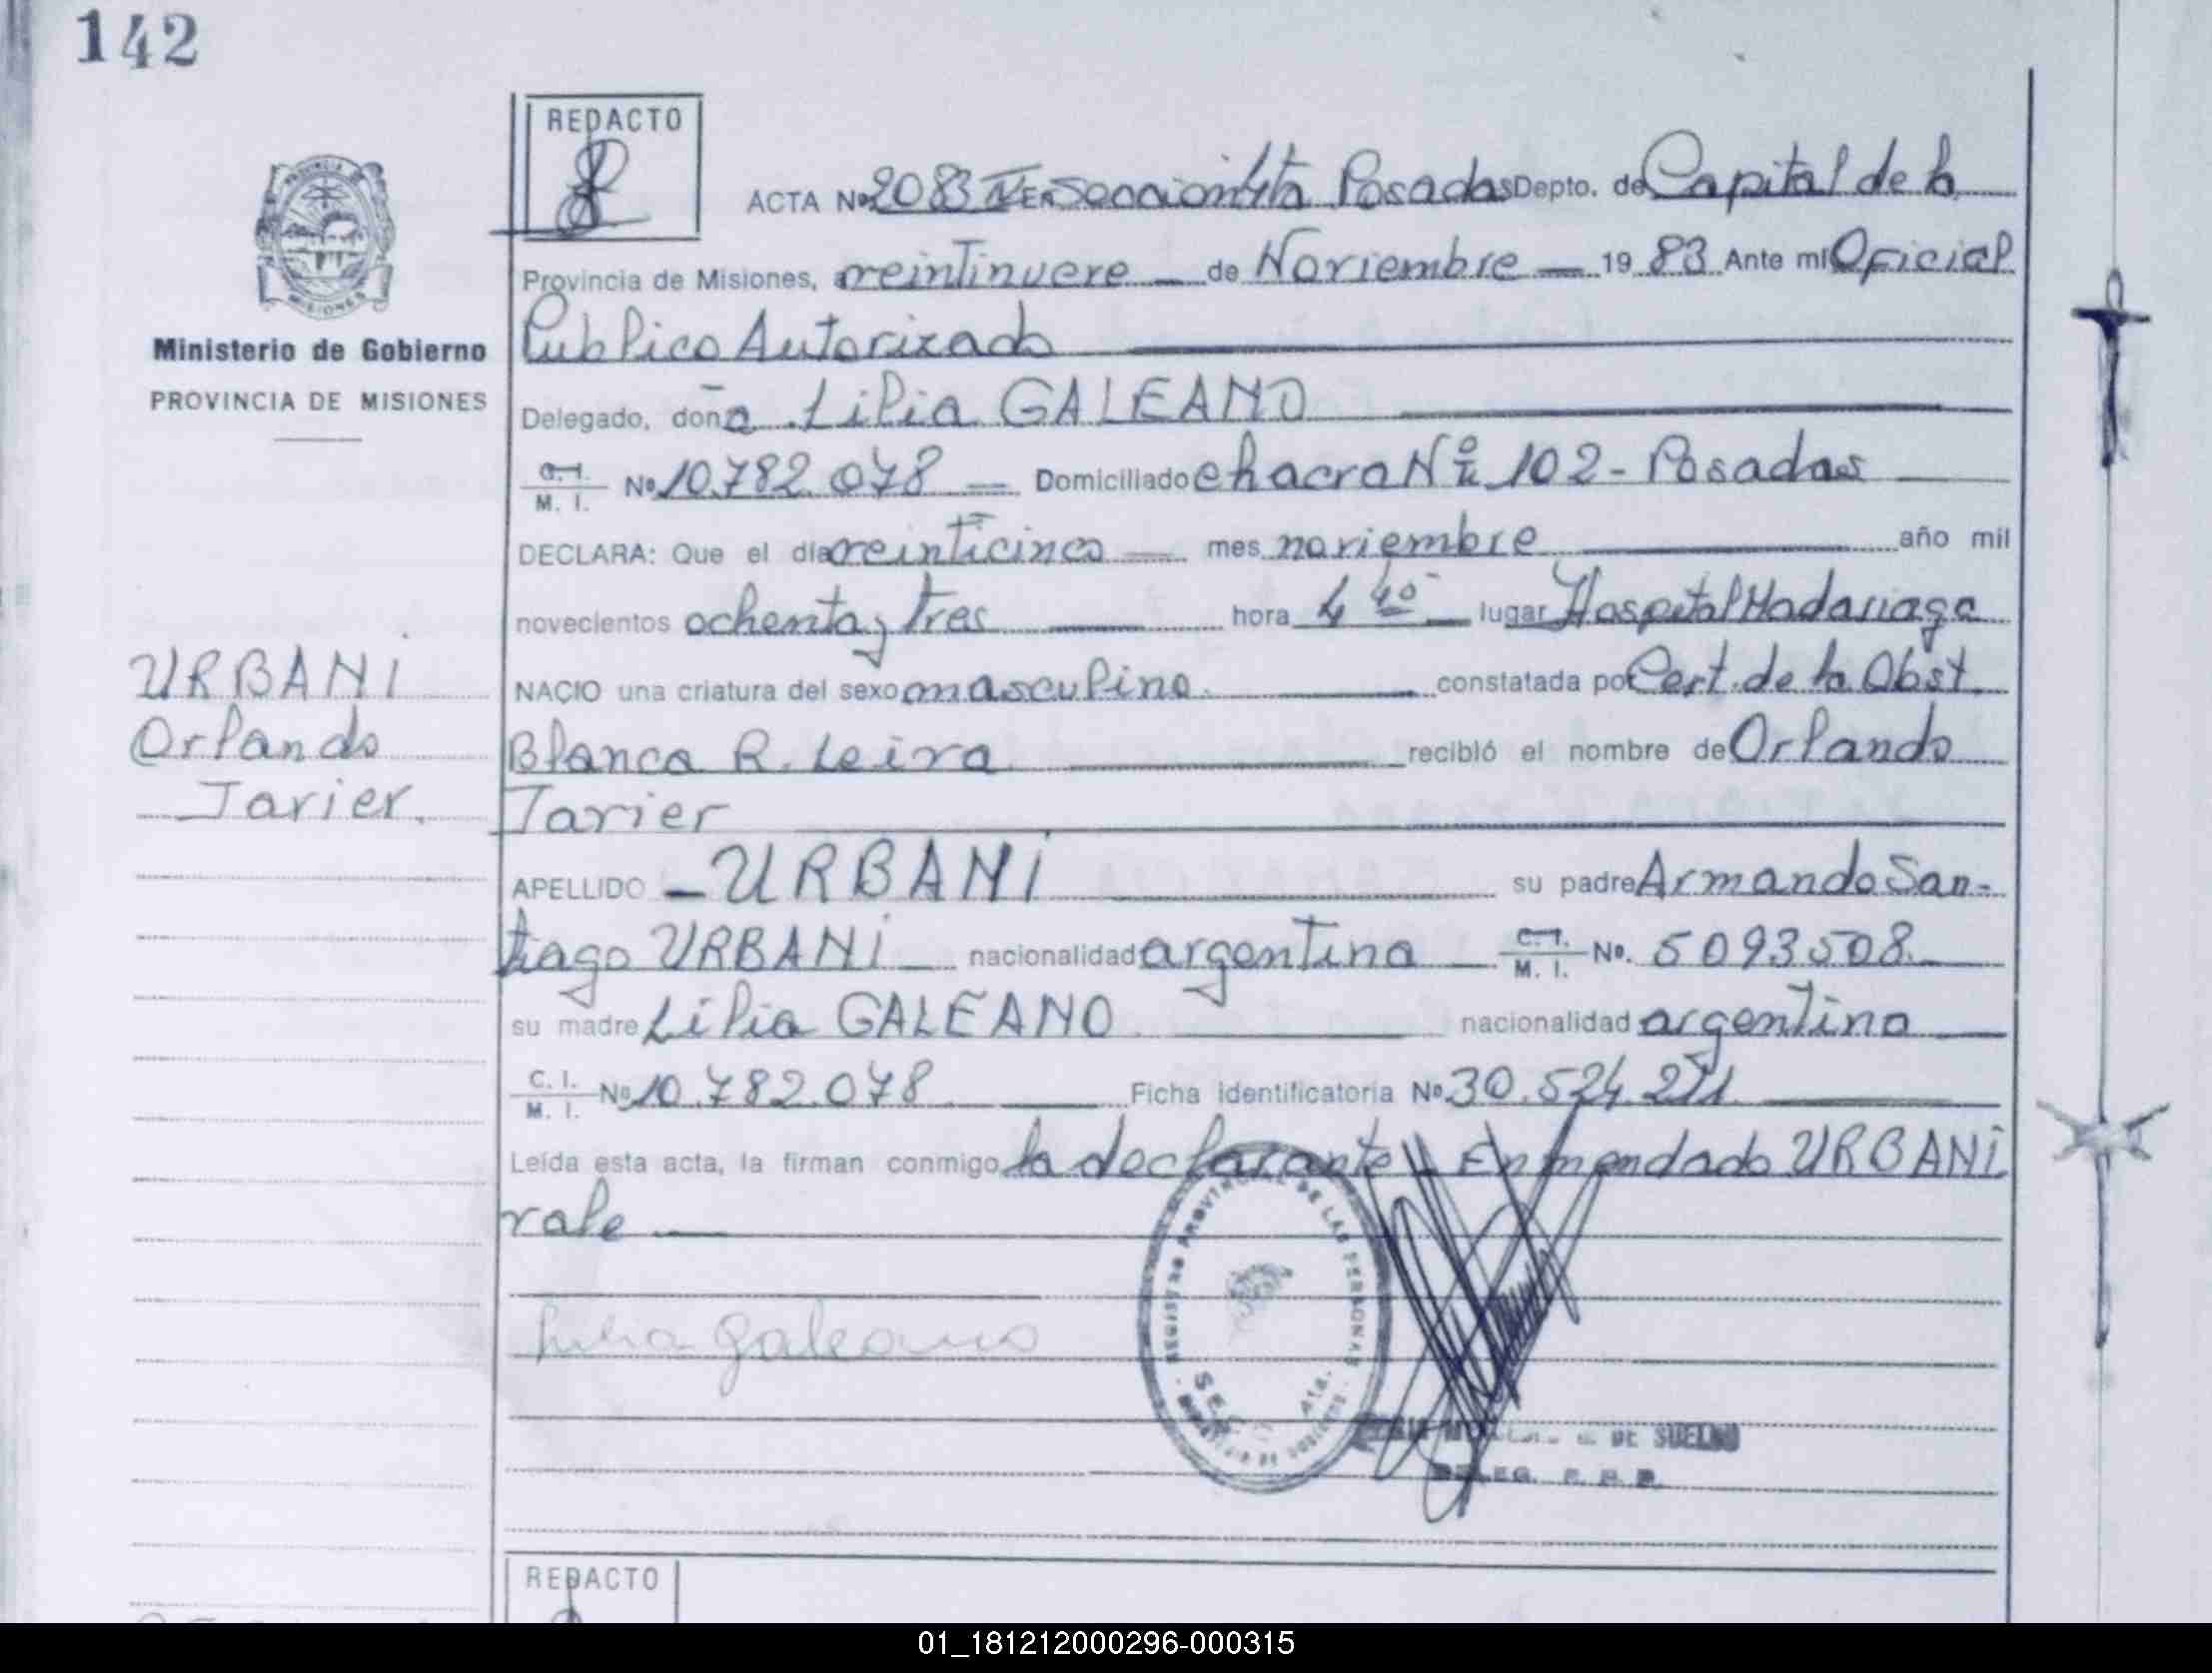 142
REDACTO
ACTA Nº 2083 IV EN Sección 4ta Posadas Depto. de Capital de la
Provincia de Misiones, a veintinueve — de Noviembre — 19 83 Ante mí Oficial
Publico Autorizado
Ministerio de Gobierno
PROVINCIA DE MISIONES
Delegado, doña Lilia GALEANO
C. I.
M. I. Nº 10.782.078 — Domiciliado chacra Nº 102 - Posadas
DECLARA: Que el día veinticinco — mes noviembre año mil
novecientos ochenta y tres hora 4 40 — lugar Hospital Madariaga
NACIO una criatura del sexo masculino. constatada por Cert. de la Obst.
Blanca R. Leiva recibió el nombre de Orlando
Javier
URBANI
Orlando
Javier.
APELLIDO — URBANI su padre Armando San-
tiago URBANI — nacionalidad argentina — C. I.
M. I. Nº. 5093508.
su madre Lilia GALEANO nacionalidad argentina
C. I.
M. I. Nº 10.782.078 Ficha identificatoria Nº 30.524.271
Leída esta acta, la firman conmigo la declarante Enmendado URBANI
vale —
Galeano
REGISTRO PROVINCIAL DE LAS PERSONAS
SEC 4ta.
MINISTERIO DE GOBIERNO
DE SUELDO
DELEG. R. P. P.
REDACTO
01_181212000296-000315